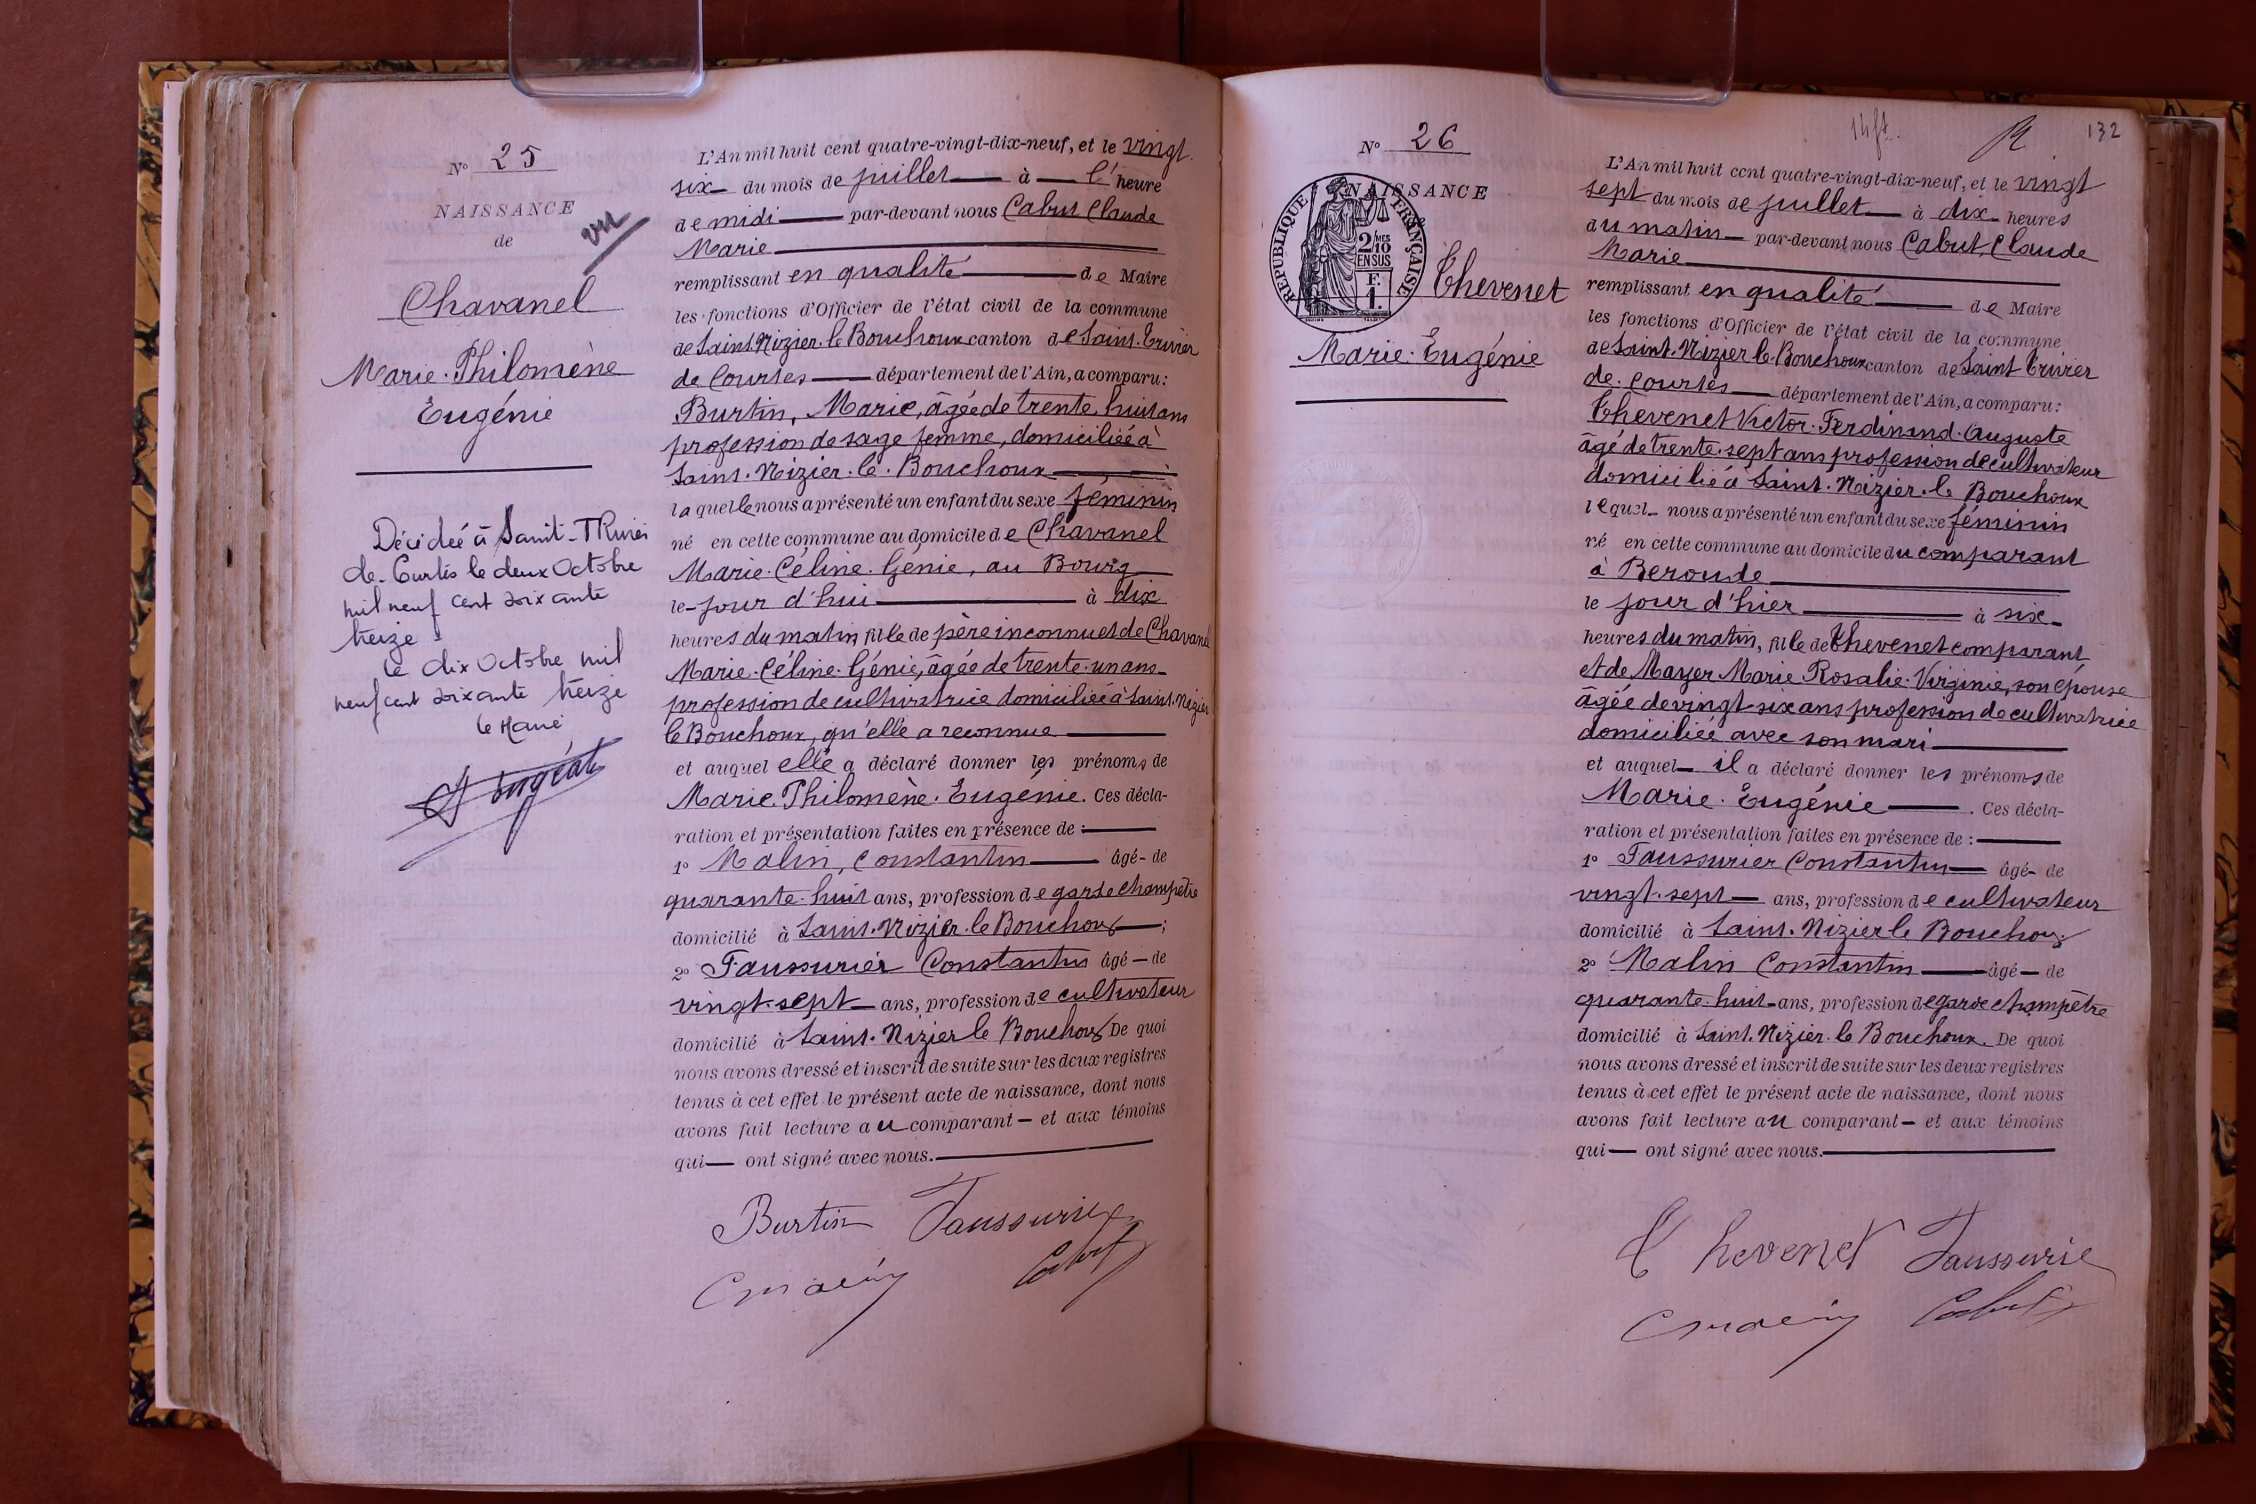 N° 25
NAISSANCE
de
vu
Chavanel
Marie. Philomène
Eugénie
Décédée à Saint-Trivier
de-Curtis le deux Octobre
mil neuf cent soixante
treize
le dix Octobre mil
neuf cent soixante treize
le Maire
L'An mil huit cent quatre-vingt-dix-neuf, et le vingt
six du mois de juillet à l'heure
de midi par-devant nous Cabut Claude
Marie
remplissant en qualité de Maire
les fonctions d'Officier de l'état civil de la commune
de Saint. Nizier. le Bouchoux canton de Saint. Trivier
de Courtes département de l'Ain, a comparu:
Burtin, Marie, âgée de trente. huit ans
profession de sage femme, domiciliée à
Saint. Nizier. le. Bouchoux
laquelle nous a présenté un enfant du sexe féminin
né en cette commune au domicile de Chavanel
Marie. Céline. Génie, au Bourg
le jour d'hui à dix
heures du matin, fille de père inconnu et de Chavanel
Marie. Céline. Génie, âgée de trente. un ans
profession de cultivatrice domiciliée à Saint. Nizier
le Bouchoux, qu'elle a reconnue
et auquel elle a déclaré donner les prénoms de
Marie. Philomène. Eugénie. Ces décla-
ration et présentation faites en présence de :
1° Malin, Constantin âgé de
quarante. huit ans, profession de garde champêtre
domicilié à Saint. Nizier. le Bouchoux ;
2° Faussurier Constantin âgé de
vingt. sept ans, profession de cultivateur
domicilié à Saint. Nizier le Bouchoux De quoi
nous avons dressé et inscrit de suite sur les deux registres
tenus à cet effet le présent acte de naissance, dont nous
avons fait lecture au comparant et aux témoins
qui ont signé avec nous.
Burtin Faussurier
Cmalin Cabut
N° 26
14 ft.
132
NAISSANCE
RÉPUBLIQUE FRANÇAISE
2/10MES
EN SUS
F.
1.
Thevenet
Marie. Eugénie
L'An mil huit cent quatre-vingt-dix-neuf, et le vingt
sept du mois de juillet à dix heures
du matin par-devant nous Cabut, Claude
Marie
remplissant en qualité de Maire
les fonctions d'Officier de l'état civil de la commune
de Saint. Nizier le. Bouchoux canton de Saint Trivier
de. Courtes département de l'Ain, a comparu:
Thevenet Victor. Ferdinand. Auguste
âgé de trente. sept ans profession de cultivateur
domicilié à Saint. Nizier. le Bouchoux
lequel nous a présenté un enfant du sexe féminin
né en cette commune au domicile du comparant
à Beroude
le jour d'hier à six
heures du matin, fille de Thevenet comparant
et de Mayer Marie Rosalie. Virginie, son épouse
âgée de vingt-six ans profession de cultivatrice
domiciliée avec son mari
et auquel il a déclaré donner les prénoms de
Marie. Eugénie. Ces décla-
ration et présentation faites en présence de :
1° Faussurier Constantin âgé de
vingt. sept ans, profession de cultivateur
domicilié à Saint. Nizier le Bouchoux
2° Malin Constantin âgé de
quarante. huit ans, profession de garde champêtre
domicilié à Saint. Nizier. le Bouchoux. De quoi
nous avons dressé et inscrit de suite sur les deux registres
tenus à cet effet le présent acte de naissance, dont nous
avons fait lecture au comparant et aux témoins
qui ont signé avec nous.
Thevenet Faussurie
Cmalin Cabut